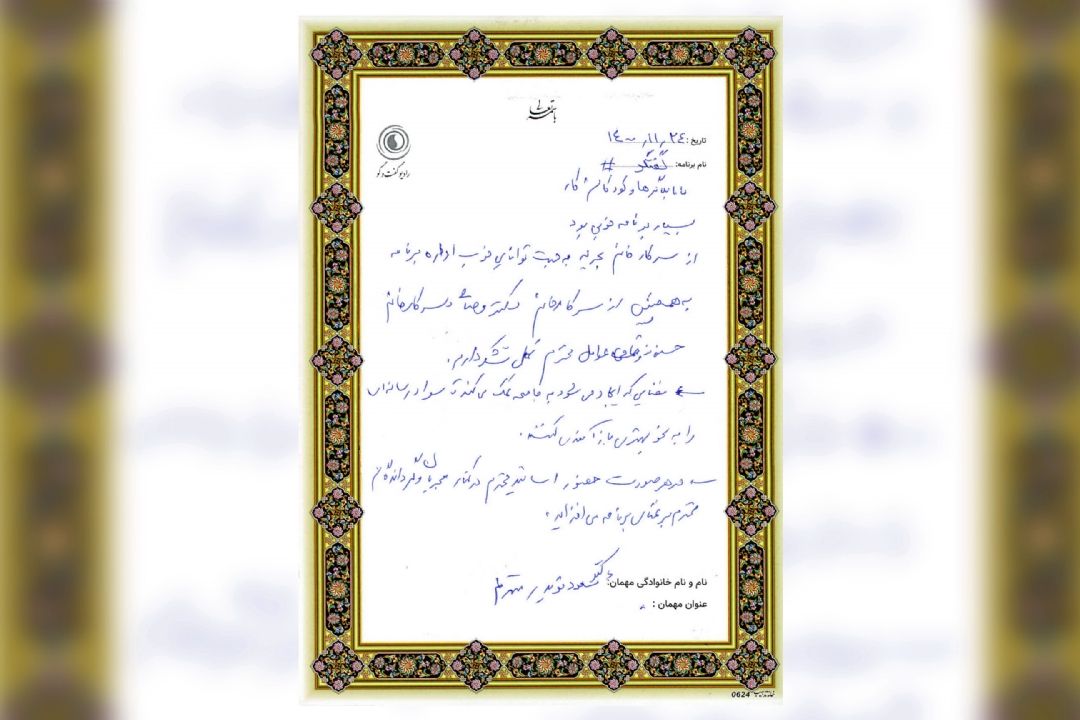 باسمه تعالی
رادیو گفت و گو
تاریخ: ۱۴۰۰٫۱۱٫۲۴
نام برنامه: گفتگو #
و کودکان کار
بسیار برنامه خوبی بود
از سرکار خانم بحریه به جهت توانایی خوب اداره برنامه
به همچنین از سرکار خانم دکتر و سرکار خانم
عوامل محترم کمال تشکر دارم.
← فضایی که ایجاد می شود به جامعه کمک می کند تا سواد رسانه ای
را به نحو بهتری بازآفرینی کنند.
← در هر صورت حضور اساتید محترم در کنار مجریان و گردانندگان
محترم بر غنای برنامه می افزاید.
نام و نام خانوادگی مهمان: دکتر مسعود
عنوان مهمان :
0624